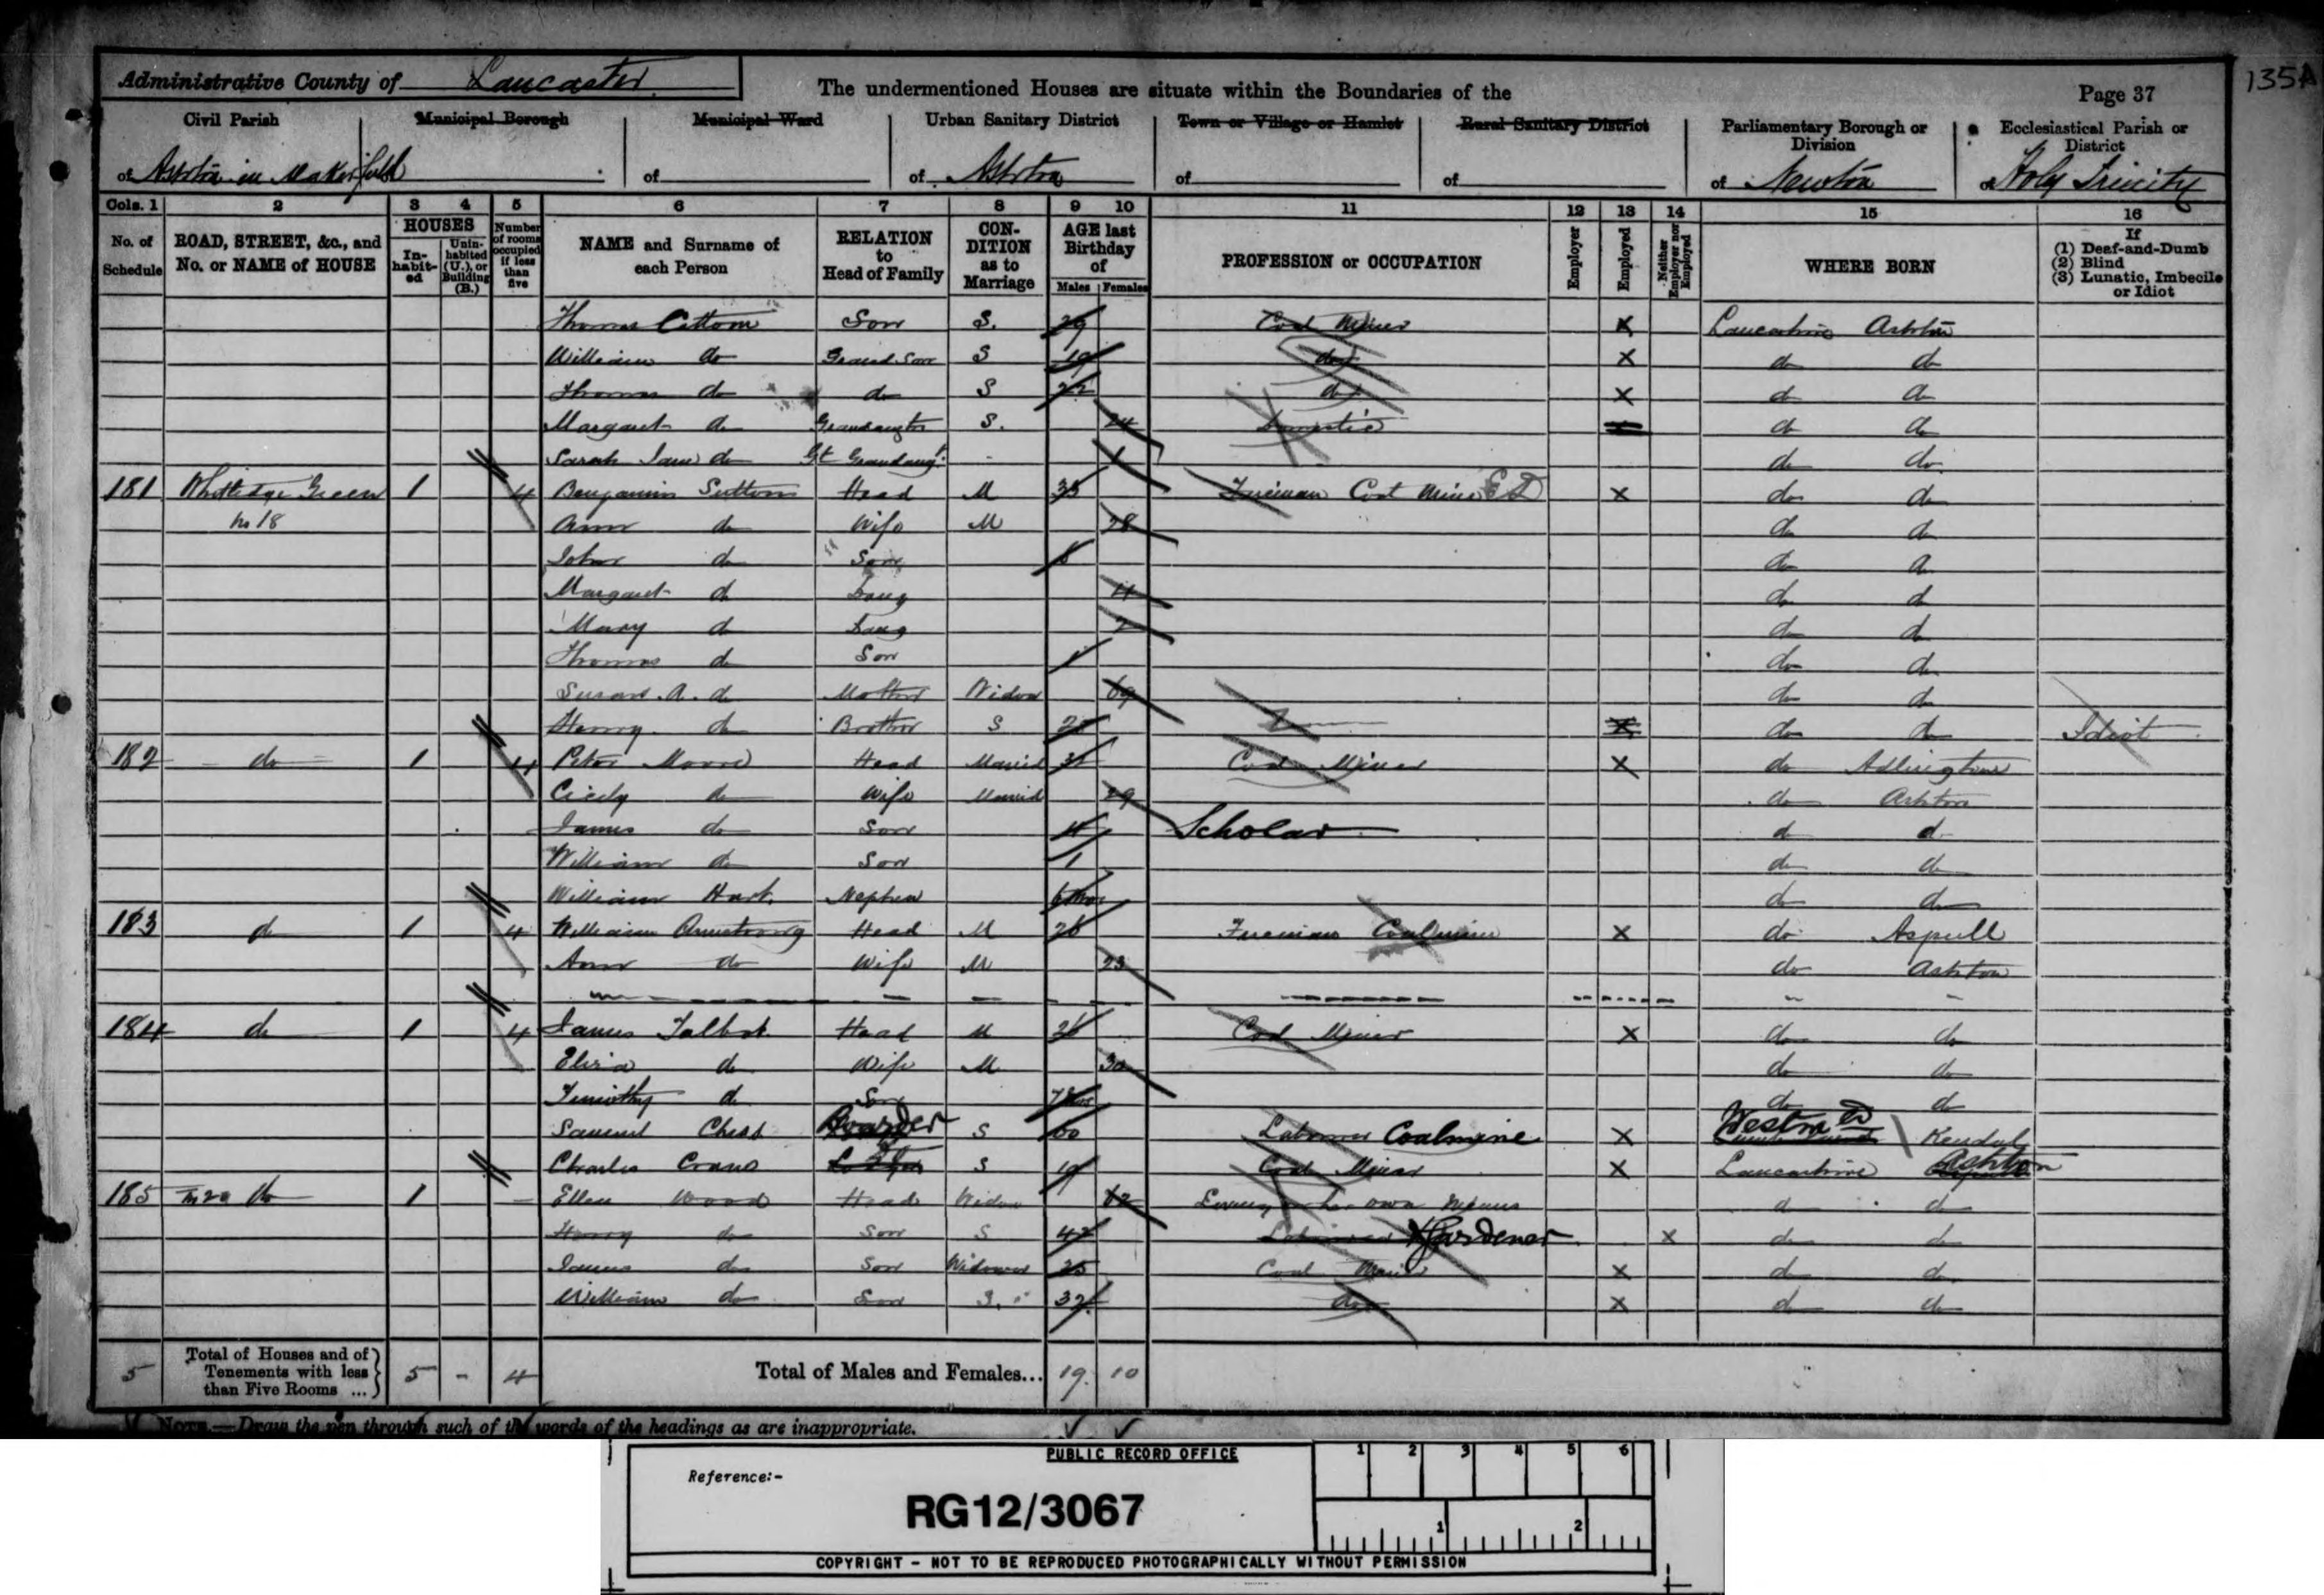 135A
Administrative County of Lancaster
The undermentioned Houses are situate within the Boundaries of the
Page 37
Civil Parish
Municipal Borough
Municipal Ward
Urban Sanitary District
Town or Village or Hamlet
Rural Sanitary District
Parliamentary Borough or Division
Ecclesiastical Parish or District
of Ashton in Makerfield of of Ashton of of of Newton of Holy Trinity
Cols. 1 2 3 4 5 6 7 8 9 10 11 12 13 14 15 16
No. of Schedule
ROAD, STREET, &c., and No. or NAME of HOUSE
HOUSES
In-habit-ed
Unin-habited (U.), or Building (B.)
Number of rooms occupied if less than five
NAME and Surname of each Person
RELATION to Head of Family
CON-DITION as to Marriage
AGE last Birthday of
Males Females
PROFESSION or OCCUPATION
Employer
Employed
Neither Employer nor Employed
WHERE BORN
If
(1) Deaf-and-Dumb
(2) Blind
(3) Lunatic, Imbecile or Idiot
Thomas Cottom Son S. 29 Coal Miner X Lancashire Ashton
William do Grand Son S 19 do X do do
Thomas do do S 22 do X do do
Margaret do Grandaugtr S. 24 Domestic do do
Sarah Jane do Gt Grandaug. 1 do do
181 Whitledge Green 1 4 Benjamin Sutton Head M 33 Fireman Coal Mine X do do
No 18 Ann do Wife M 28 do do
John do Son 6 do do
Margaret do Daug 4 do do
Mary do Daug 2 do do
Thomas do Son 1 do do
Susan. A. do Mother Widow 69 do do
Henry. do Brother S do do Idiot
182 do 1 4 Peter Moore Head Married Coal Miner X do Adlington
Cicely do Wife Married 29 do Ashton
James do Son 4 Scholar do do
William do Son 1 do do
William Hart. Nephew 6 Mos do do
183 do 1 4 William Armstrong Head M 26 Fireman Coalmine X do Aspull
Ann do Wife M 23 do Ashton
184 do 1 4 James Talbot Head M 36 Coal Miner X do do
Eliza do Wife M 30 do do
Timothy do Son do do
Samuel Boarder S 60 Labourer Coalmine X Westmd Kendal
Charles do S 19 Coal Miner X Lancashire Ashton
185 No 20 do 1 - Ellen Wood Head Widow 62 Living on her own Means do do
Henry do Son S 42 Gardener X do do
James do Son Widower 35 Coal Miner X do do
William do Son S. 32 do X do do
5 Total of Houses and of Tenements with less than Five Rooms ... 5 - 4 Total of Males and Females... 19. 10
NOTE.—Draw the pen through such of the words of the headings as are inappropriate.
PUBLIC RECORD OFFICE
1 2 3 4 5 6
Reference:-
RG12/3067
1 2
COPYRIGHT - NOT TO BE REPRODUCED PHOTOGRAPHICALLY WITHOUT PERMISSION